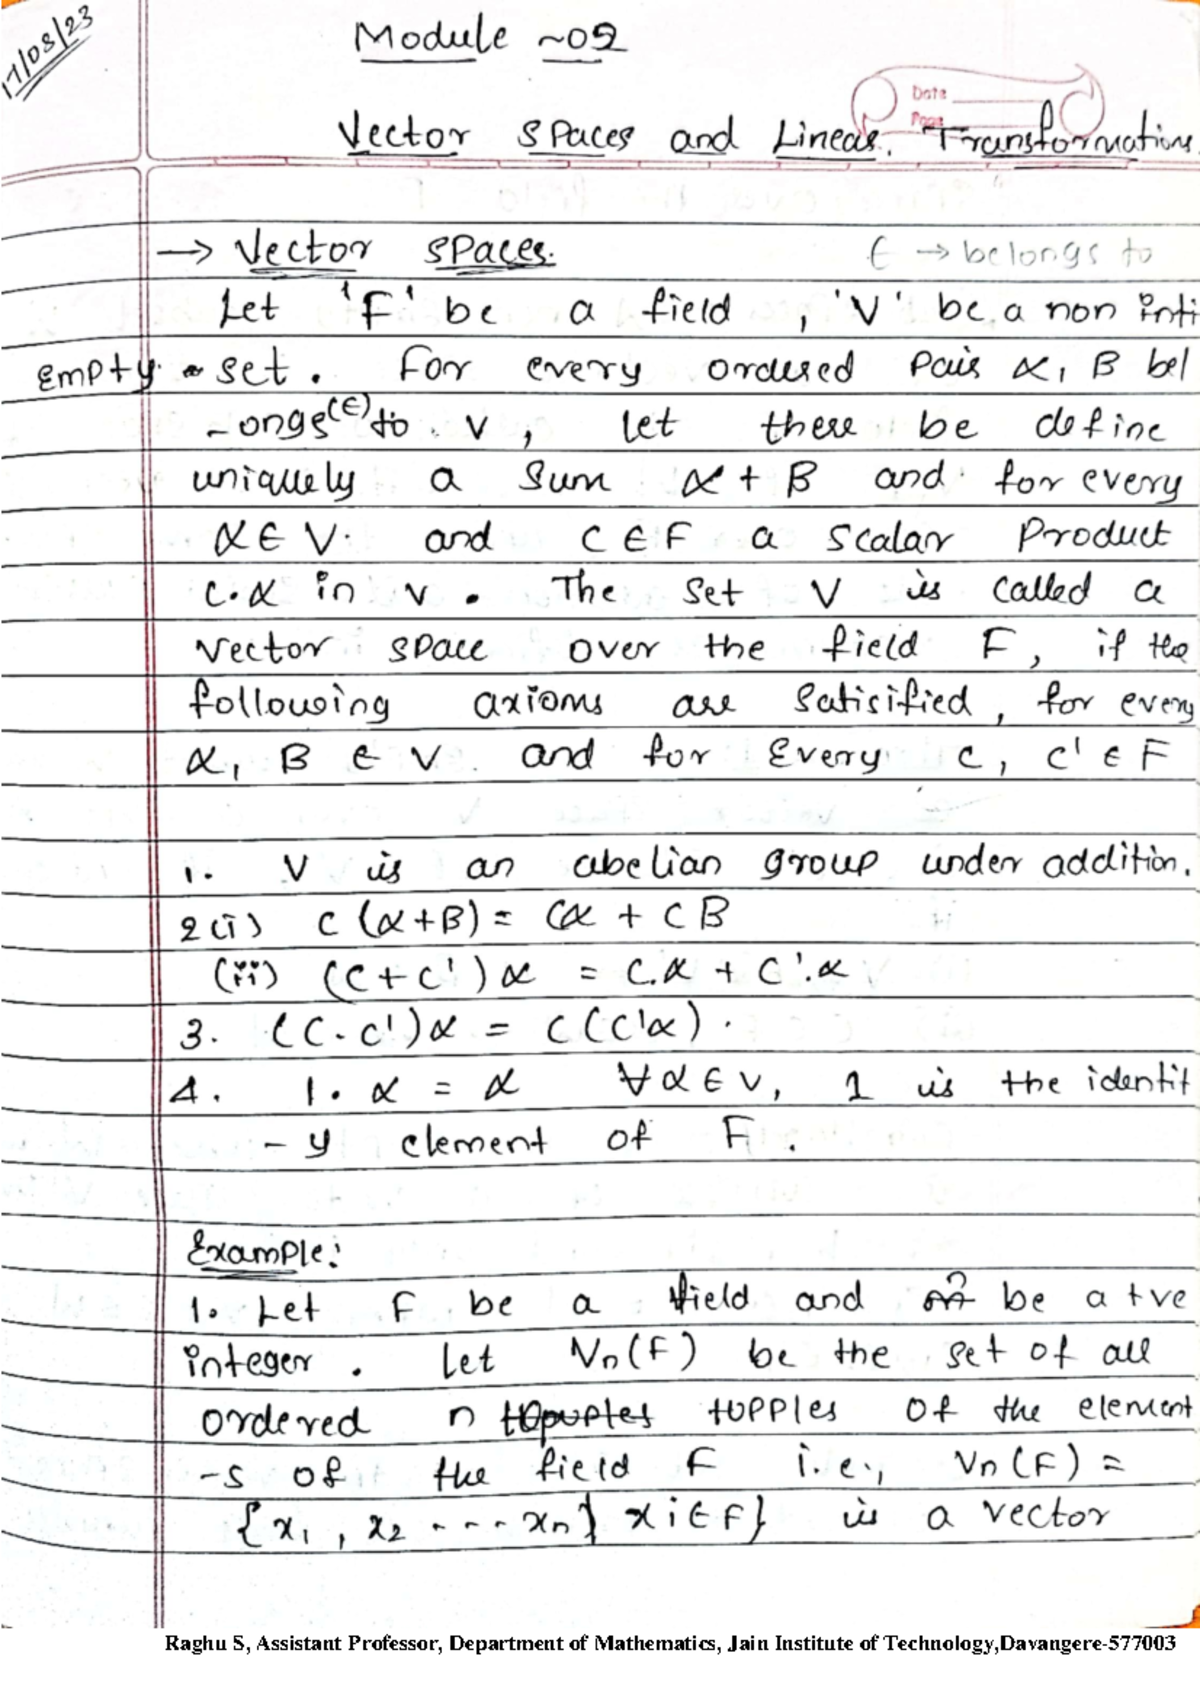 17/08/23
Module ~02
Date
Page
Vector Spaces and Linear Transformations
→ Vector Spaces. ∈ → belongs to
Let 'F' be a field, 'V' be a non
Empty set. For every ordered pair α, β bel
-ongs(∈) to V, let there be define
uniquely a sum α + β and for every
α ∈ V. and C ∈ F a scalar Product
C.α in V. The set V is called a
vector space over the field F, if the
following axioms are satisified, for every
α, β ∈ V and for Every C, C' ∈ F
1. V is an abelian group under addition.
2(i) C (α+β) = Cα + Cβ
(ii) (C+C')α = C.α + C'.α
3. (C.C')α = C(C'α).
4. 1.α = α ∀α∈V, 1 is the identit
-y element of F.
Example:
1. Let F be a field and n be a +ve
integer. Let Vn(F) be the set of all
ordered n tupples of the element
-s of the field F i.e., Vn(F) =
{x1, x2 ---- xn} xi∈F} is a vector
Raghu S, Assistant Professor, Department of Mathematics, Jain Institute of Technology,Davangere-577003